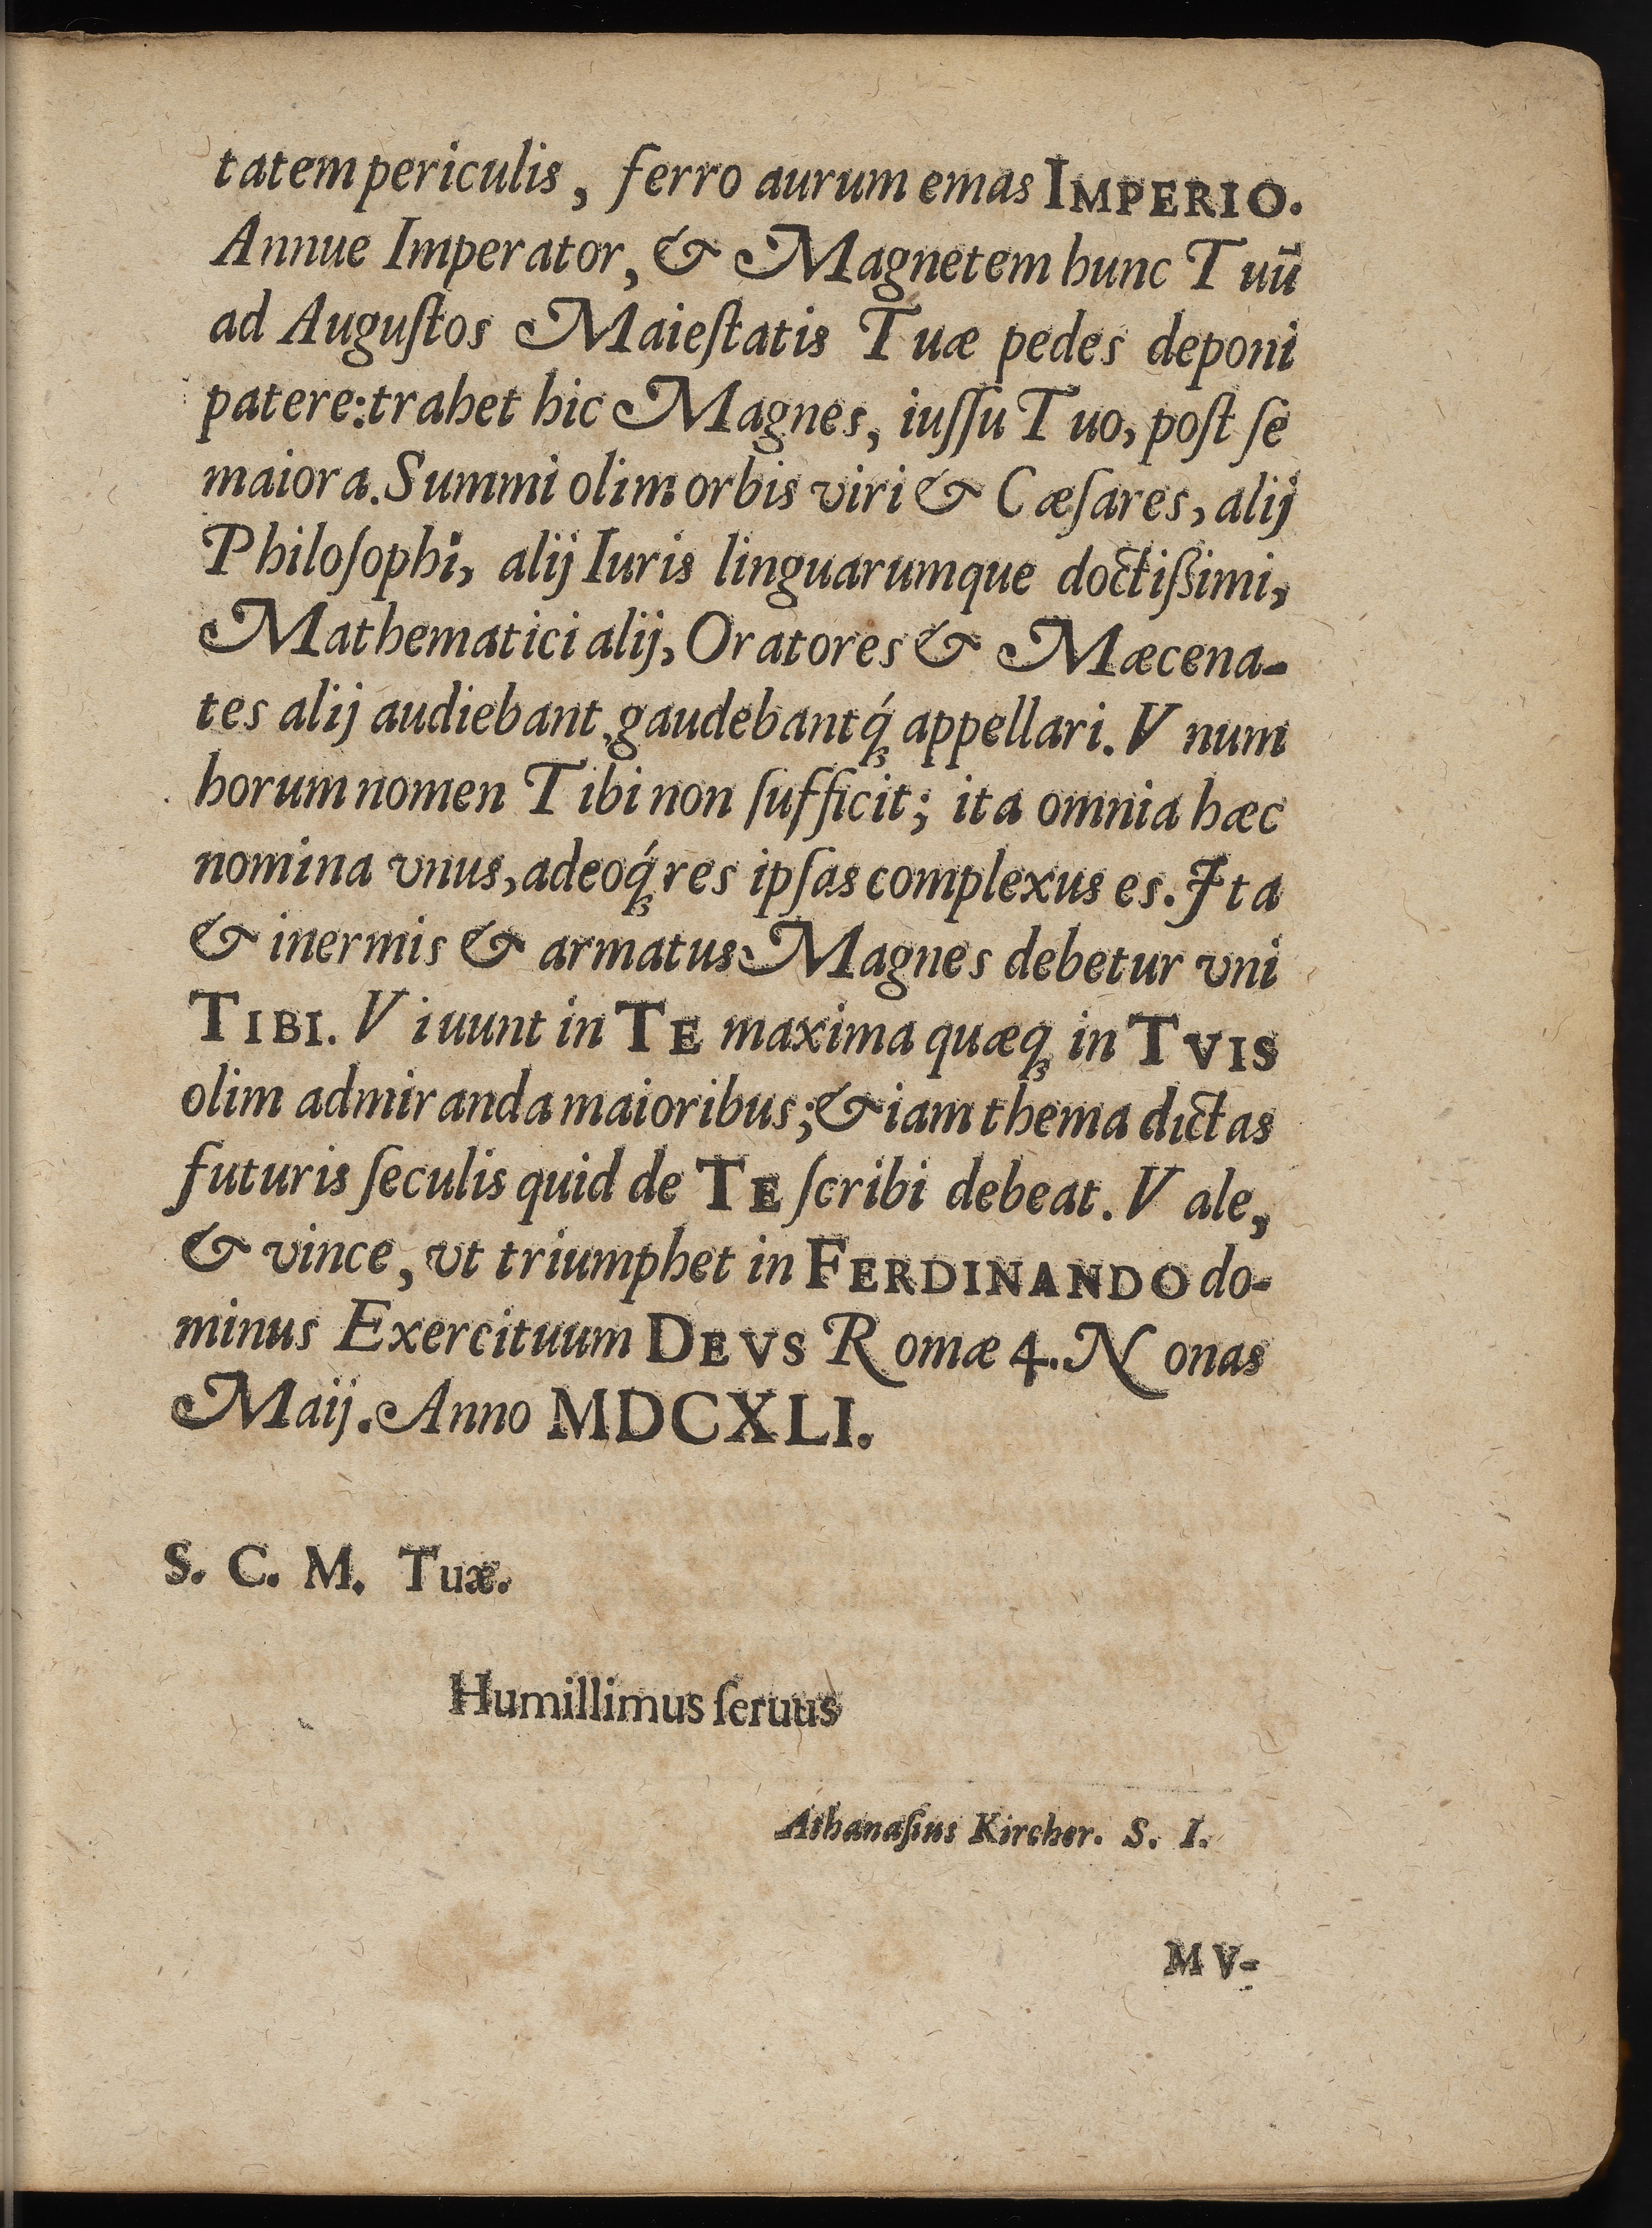 tatem periculis, ferro aurum emas IMPERIO.
Annue Imperator, & Magnetem hunc Tuū
ad Auguſtos Maieſtatis Tuæ pedes deponi
patere: trahet hic Magnes, iuſſu Tuo, poſt ſe
maiora. Summi olim orbis viri & Cæſares, alij
Philoſophi, alij Iuris linguarumque doctiſsimi,
Mathematici alij, Oratores & Mæcena-
tes alij audiebant, gaudebantq́; appellari. Vnum
horum nomen Tibi non ſufficit; ita omnia hæc
nomina vnus, adeoq́; res ipſas complexus es. Ita
& inermis & armatus Magnes debetur vni
TIBI. Viuunt in TE maxima quæq; in TVIS
olim admiranda maioribus; & iam thema dictas
futuris ſeculis quid de TE ſcribi debeat. Vale,
& vince, vt triumphet in FERDINANDO do-
minus Exercituum DEVS Romæ 4. Nonas
Maij. Anno MDCXLI.
S. C. M. Tuæ.
Humillimus ſeruus
Athanaſius Kircher. S. I.
MV-